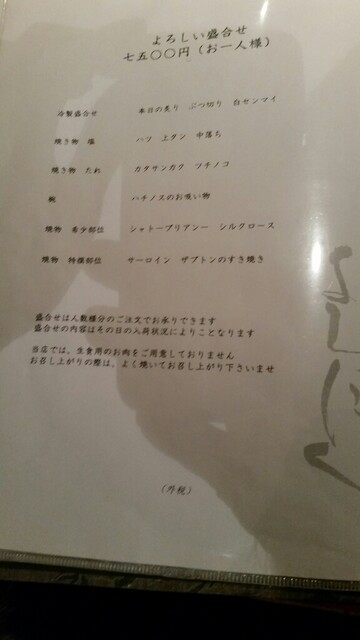 よろしい盛合せ
七五〇〇円（お一人様）
冷製盛合せ 本日の炙り ぶつ切り 白センマイ
焼き物 塩 ハツ 上タン 中落ち
焼き物 たれ カタサンカク ツチノコ
椀 ハチノスのお吸い物
焼物 希少部位 シャトーブリアン シルクロース
焼物 特撰部位 サーロイン ザブトンのすき焼き
盛合せは人数様分のご注文でお承りできます
盛合せの内容はその日の入荷状況によりことなります
当店では、生食用のお肉をご用意しておりません
お召し上がりの際は、よく焼いてお召し上がり下さいませ
（外税）